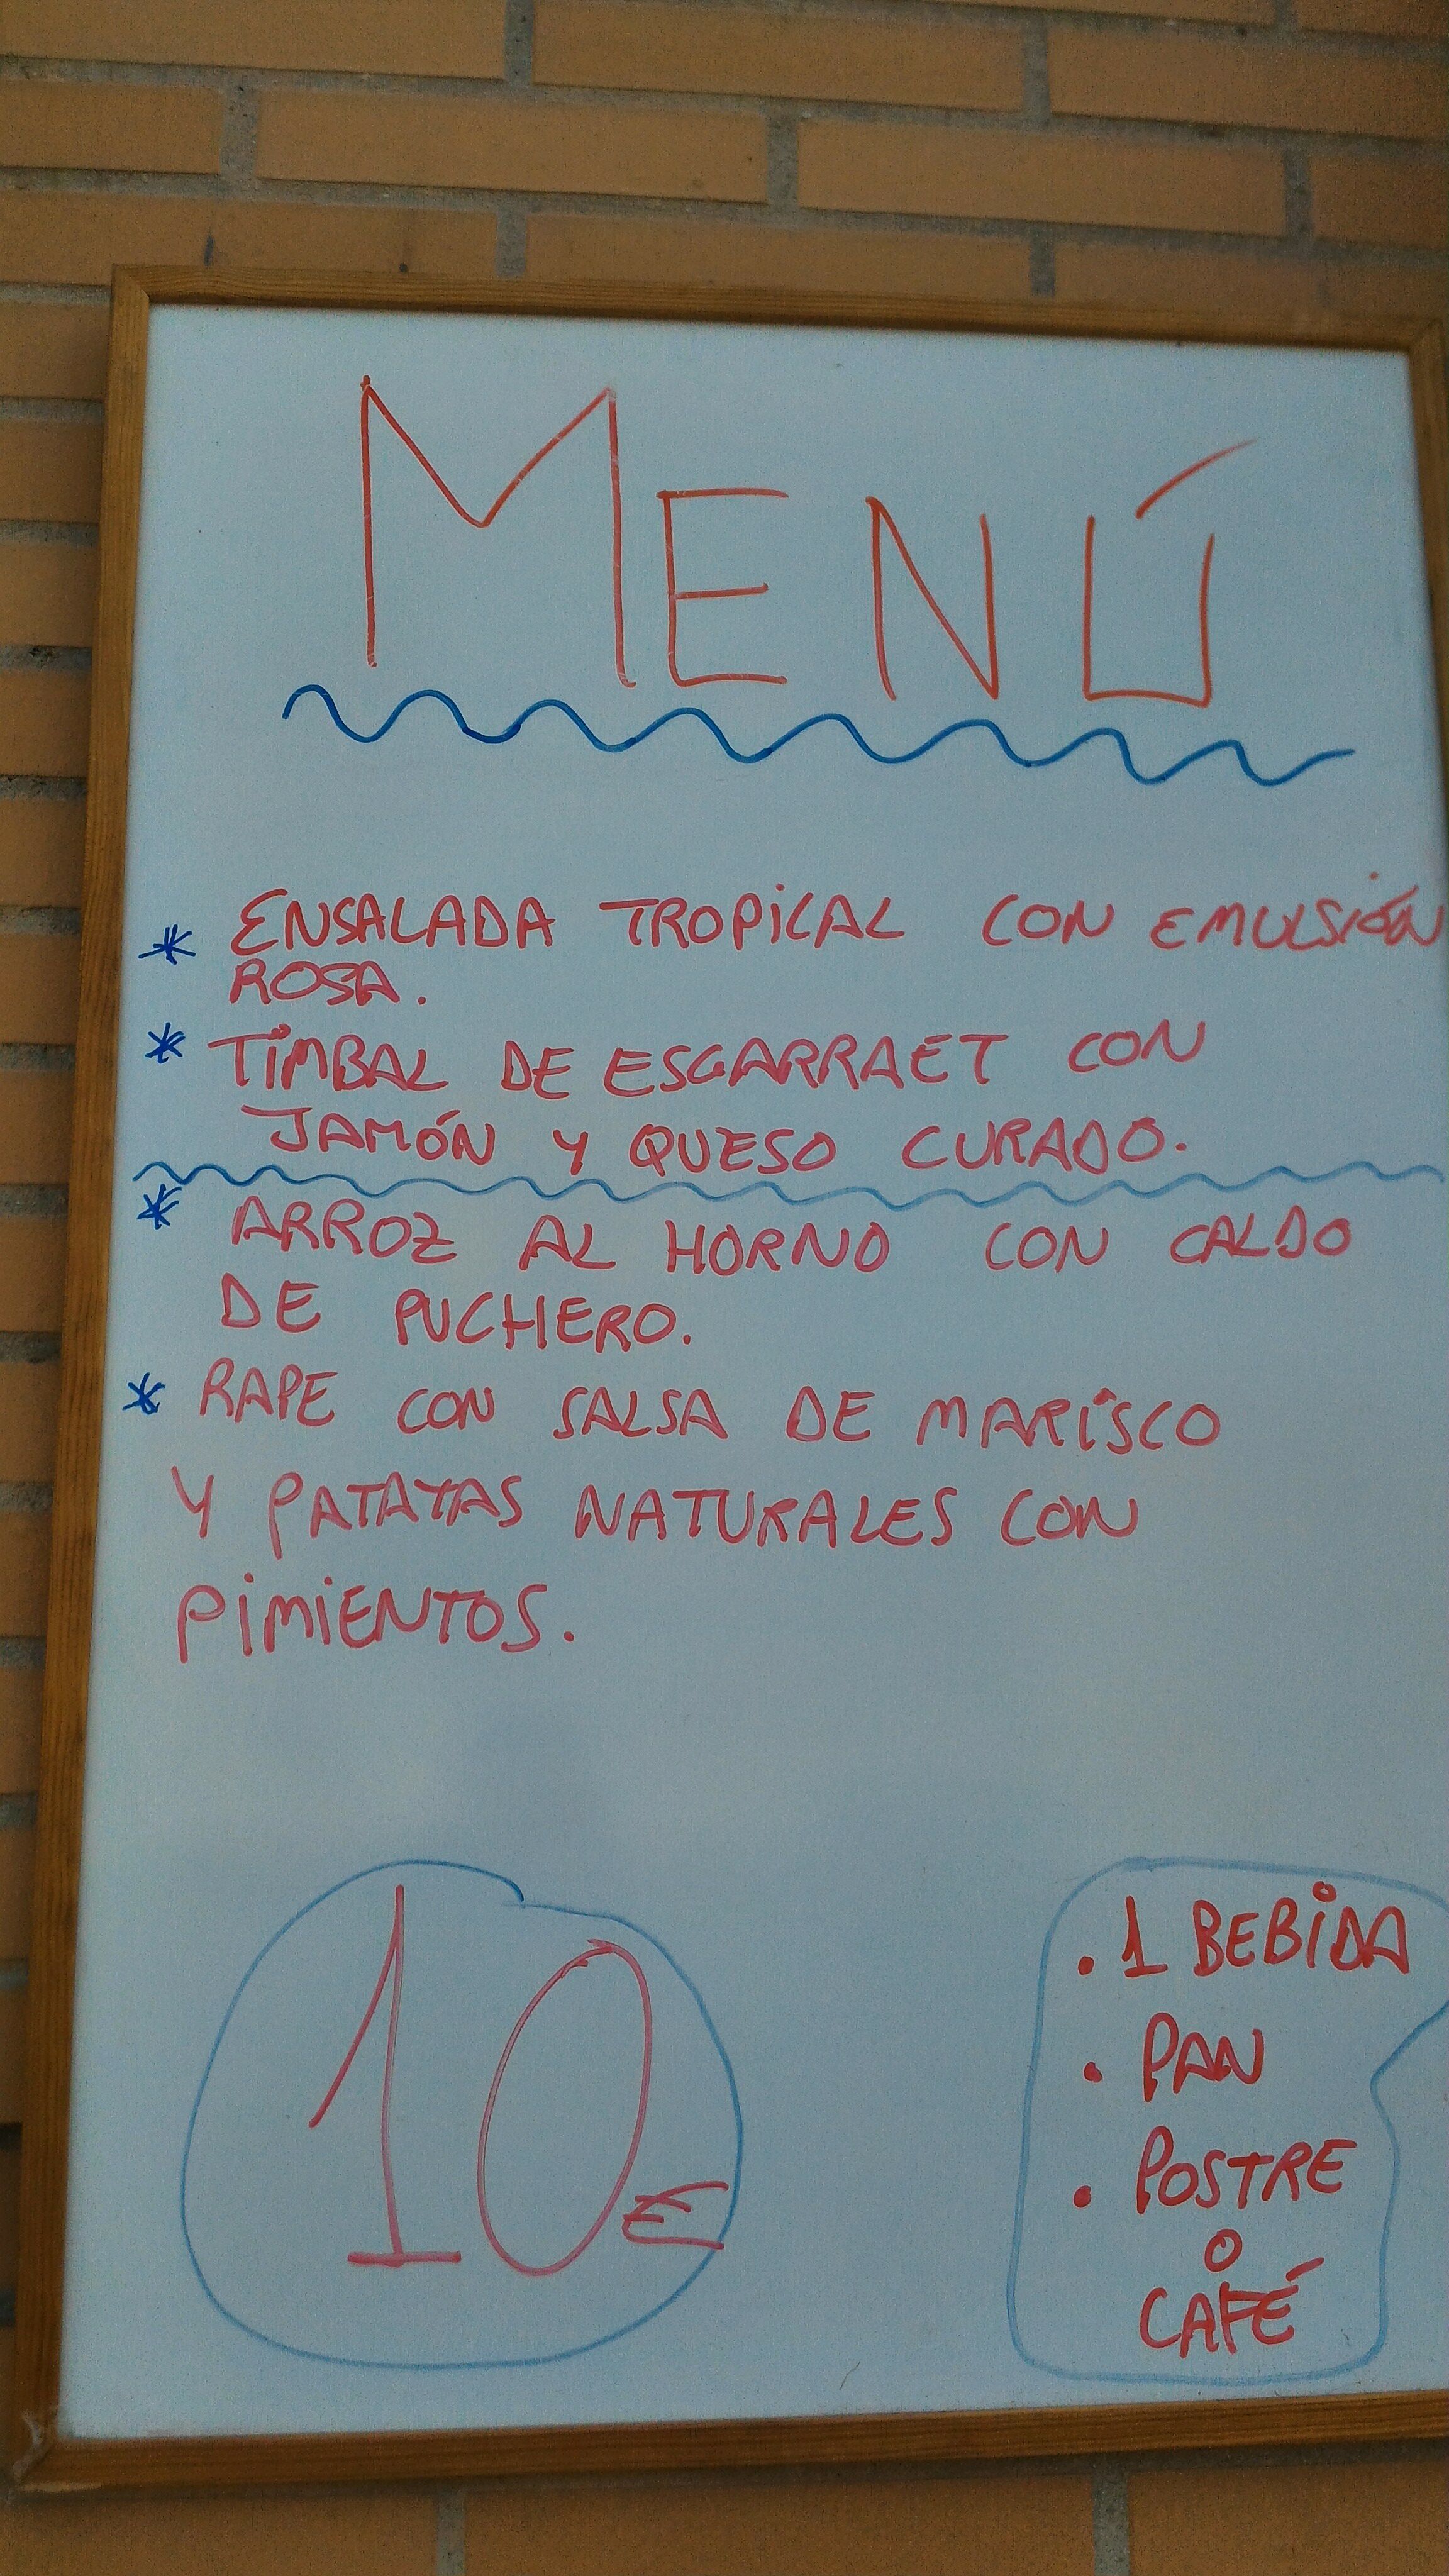 MENÚ
* ENSALADA TROPICAL CON EMULSIÓN
ROSA.
* TIMBAL DE ESGARRAET CON
JAMÓN Y QUESO CURADO.
* ARROZ AL HORNO CON CALDO
DE PUCHERO.
* RAPE CON SALSA DE MARISCO
Y PATATAS NATURALES CON
PIMIENTOS.
10€
. 1 BEBIDA
. PAN
. POSTRE
O
CAFÉ